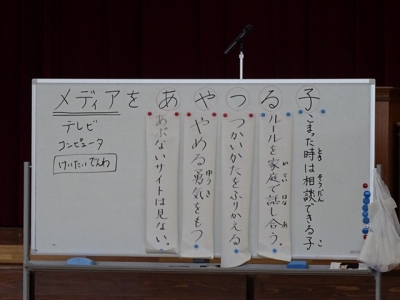 メディアをあやつる子
テレビ
コンピュータ
けいたいでんわ
あぶないサイトは見ない。
やめる勇気をもつ
つかいかたをふりかえる
ルールを家庭で話し合う。
こまった時は相談できる子